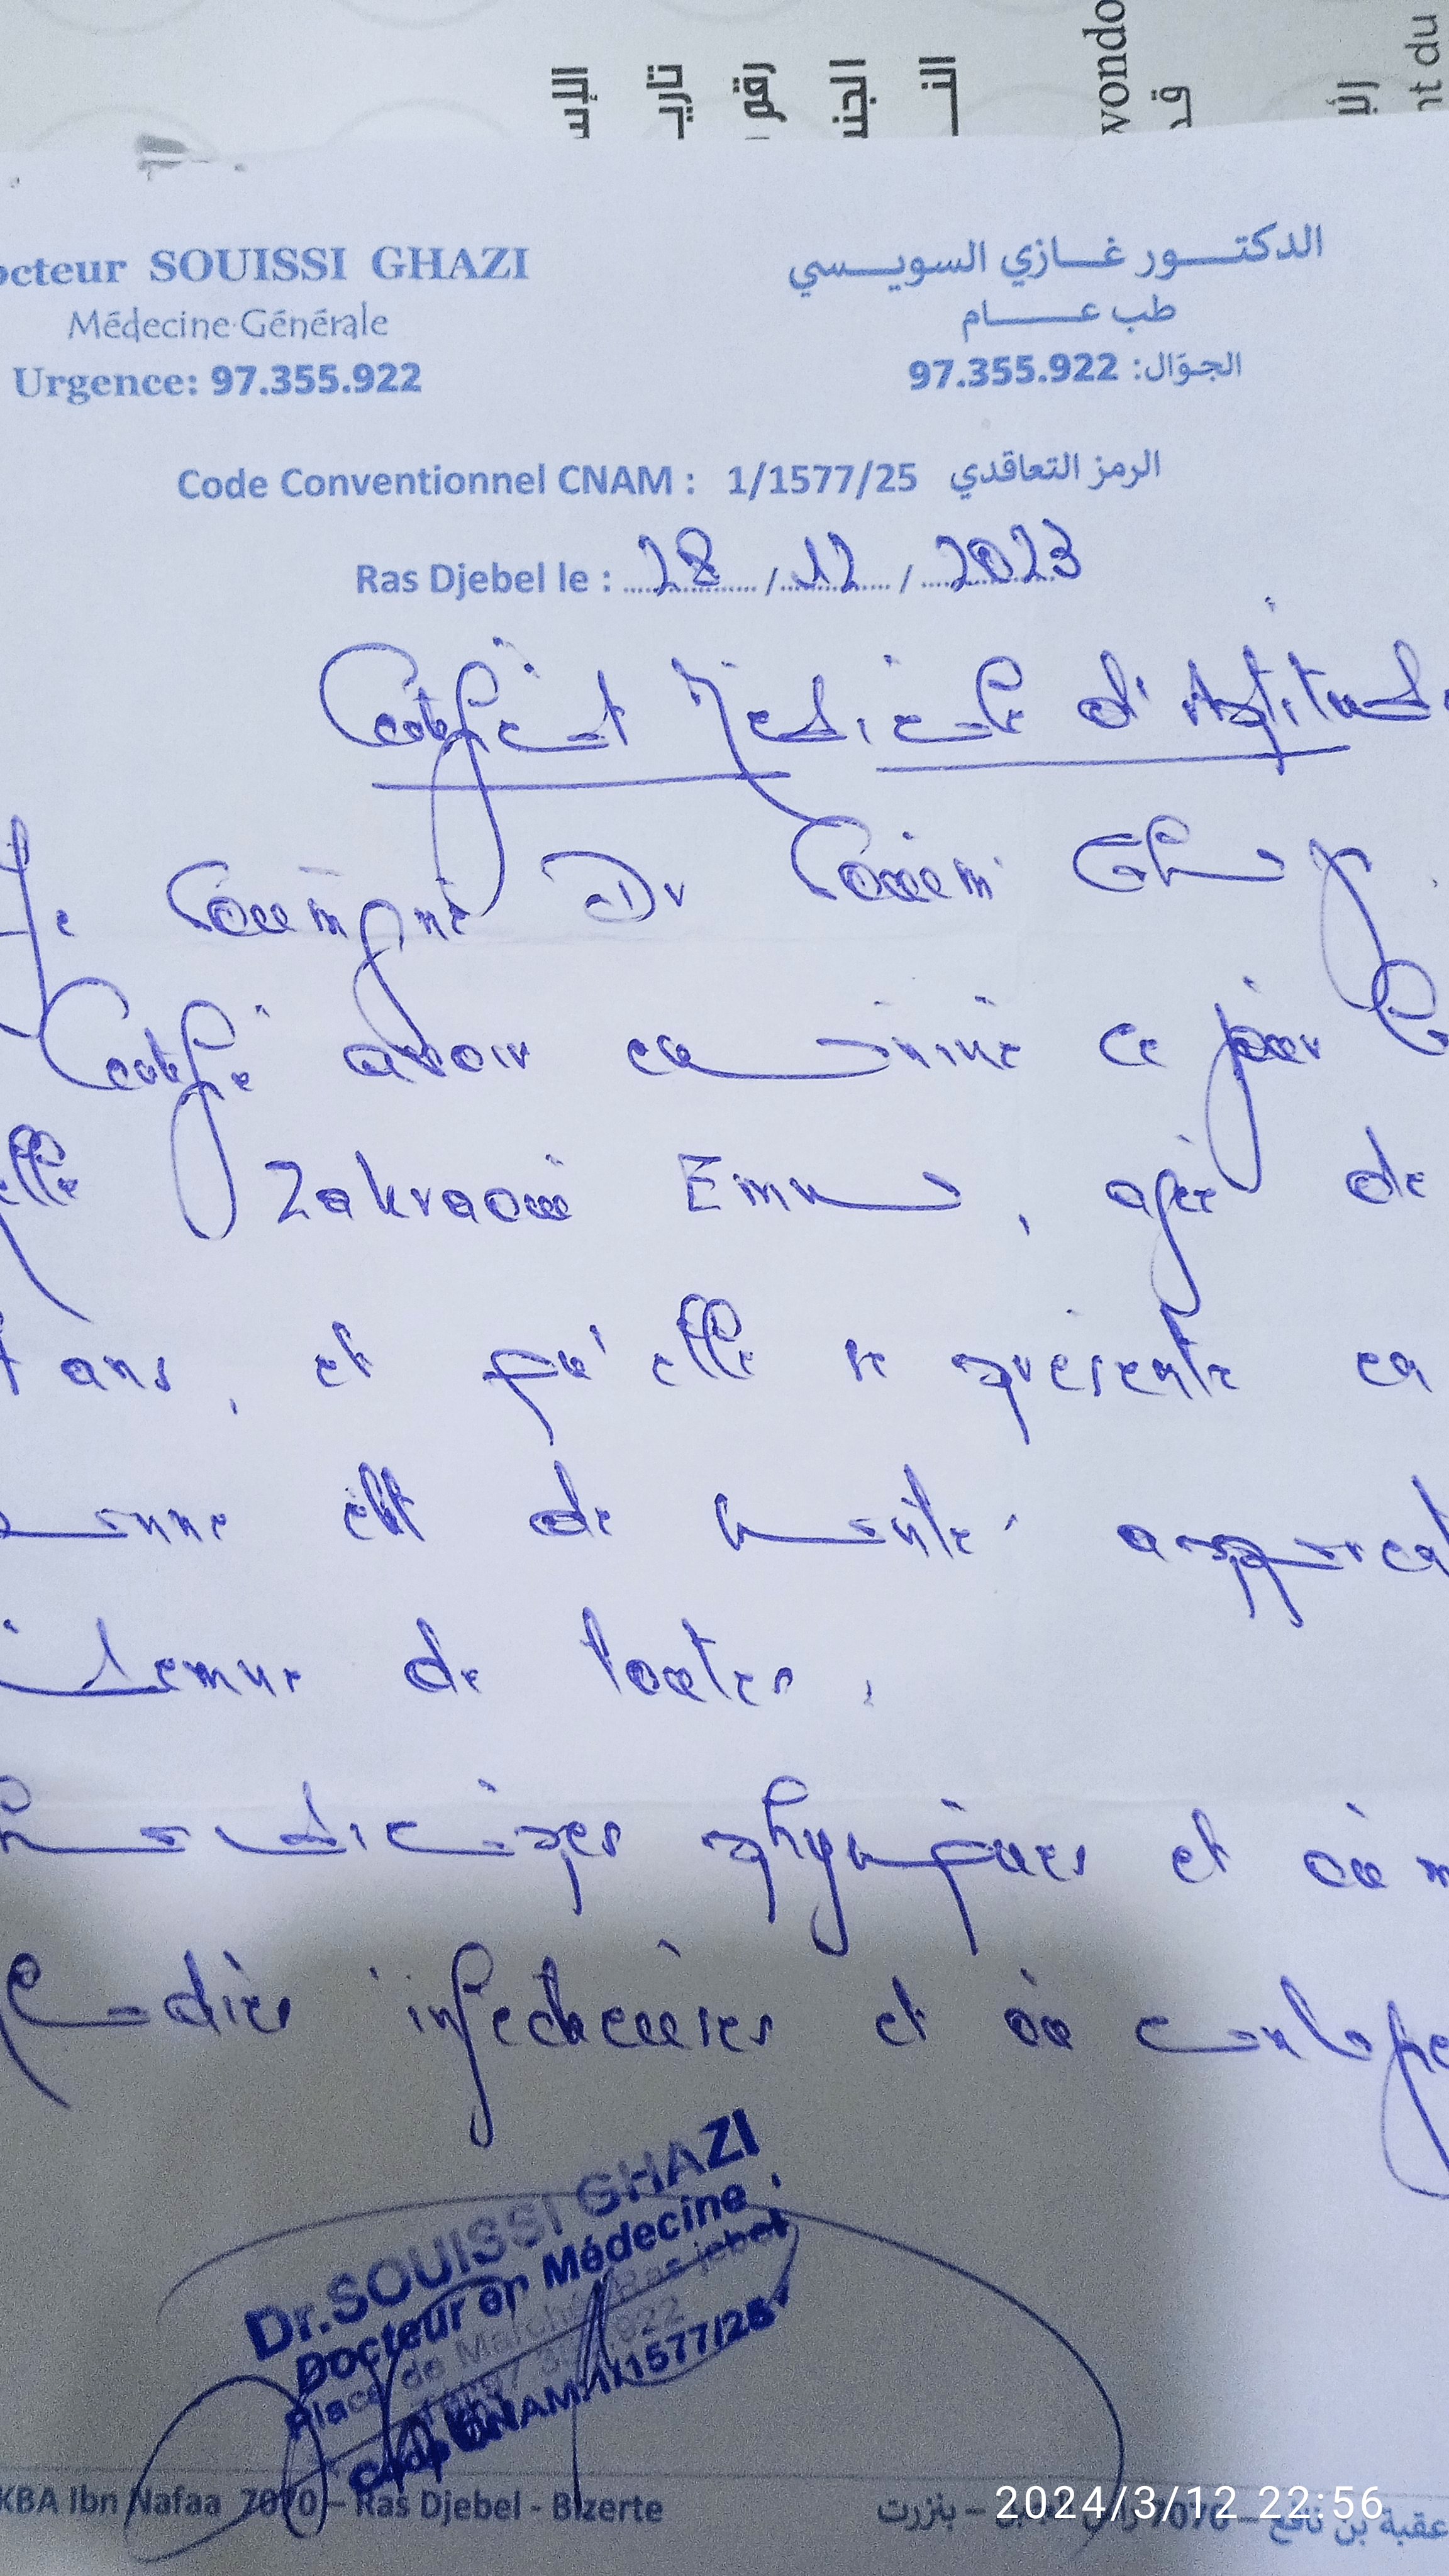 الإس
تاريـ
رقم
الجنـ
النـ
wondo
قد
nt du
octeur SOUISSI GHAZI
الدكتـــور غــازي السويـــسي
Médecine Générale
طب عـــــام
Urgence: 97.355.922
الجوّال: 97.355.922
Code Conventionnel CNAM : 1/1577/25 الرمز التعاقدي
Ras Djebel le : 28 / 12 / 2023
Certificat Médicale d'Aptitude
Je Soussigné Dr Souissi Ghazi
Certifie avoir examiné ce jour
elle Zakraoui Emna, agée de
ans, et qu'elle se présente en
bonne état de santé apparent
idemne de toutes
handicapes physiques et ou m
ladies infectieuses et ou contagie
Dr.SOUISSI GHAZI
Docteur en Médecine
Place de Marché Ras jebel
97 355 922
Code CNAM:1/1577/25
KBA Ibn Nafaa 7070 – Ras Djebel - Bizerte
عقبة بن نافع – 7070 – بنزرت
2024/3/12 22:56